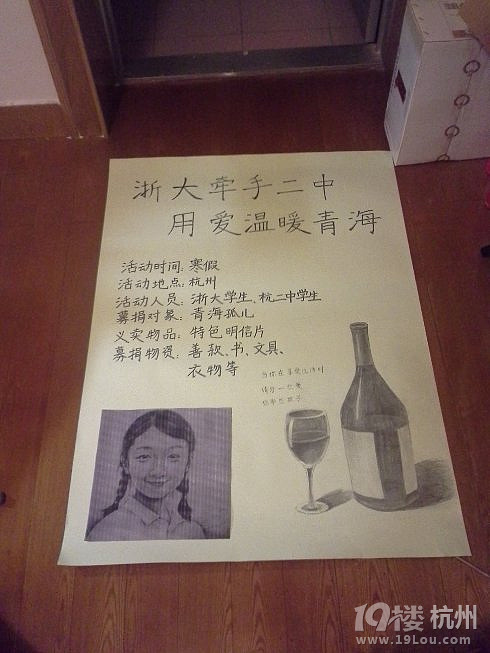 浙大牵手二中
用爱温暖青海
活动时间：寒假
活动地点：杭州
活动人员：浙大学生、杭二中学生
募捐对象：青海孤儿
义卖物品：特色明信片
募捐物资：善款、书、文具、
衣物等
当你在享受生活时
请分一些爱
给那些孩子
19楼 杭州
www.19Lou.com